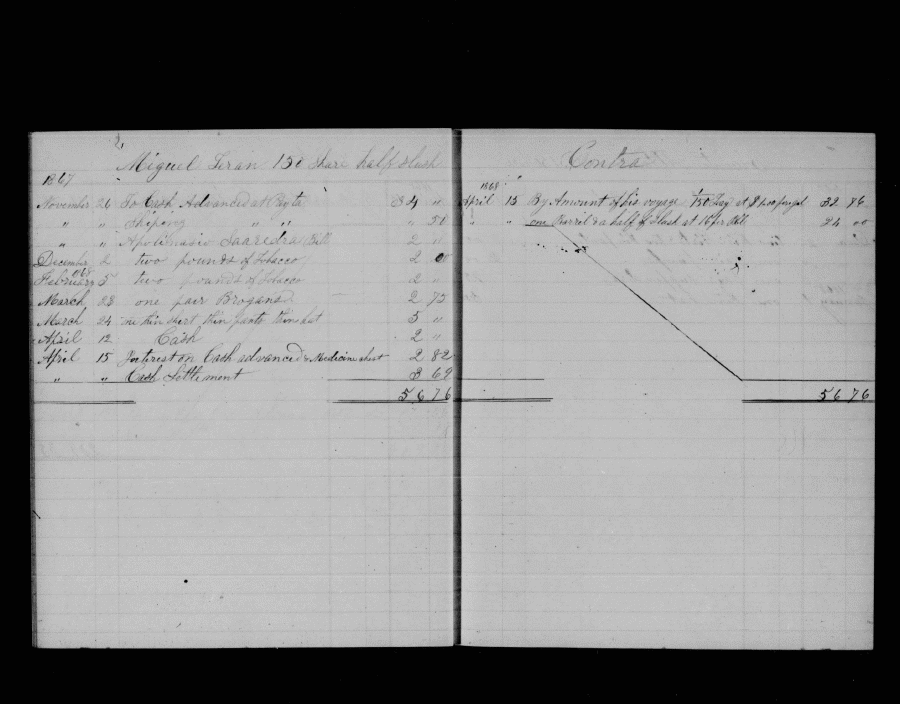 Miguel Teran 150 Share half slush
1867
November 26 To Cash Advanced at Payta 34 "
" " Shiping " " " 50
" " Apolinasio Saaredra Bill 2 "
December 2 two pounds of Tobacco 2 0
1868
February 5 two pounds of Tobacco 2 "
March 23 one pair Brogans 2 75
March 24 one thin shirt, thin pants thin hat 5 "
April 12 Cash 2 "
April 15 Interest on Cash advanced & Medicine chest 2 82
" " Cash Settlement 3 69
56 76
Contra
1868
April 15 By Amount of his voyage 1/150 Lay at 32 76
" " one Barrel & a half of slush at 16 per Bbl 24 00
56 76